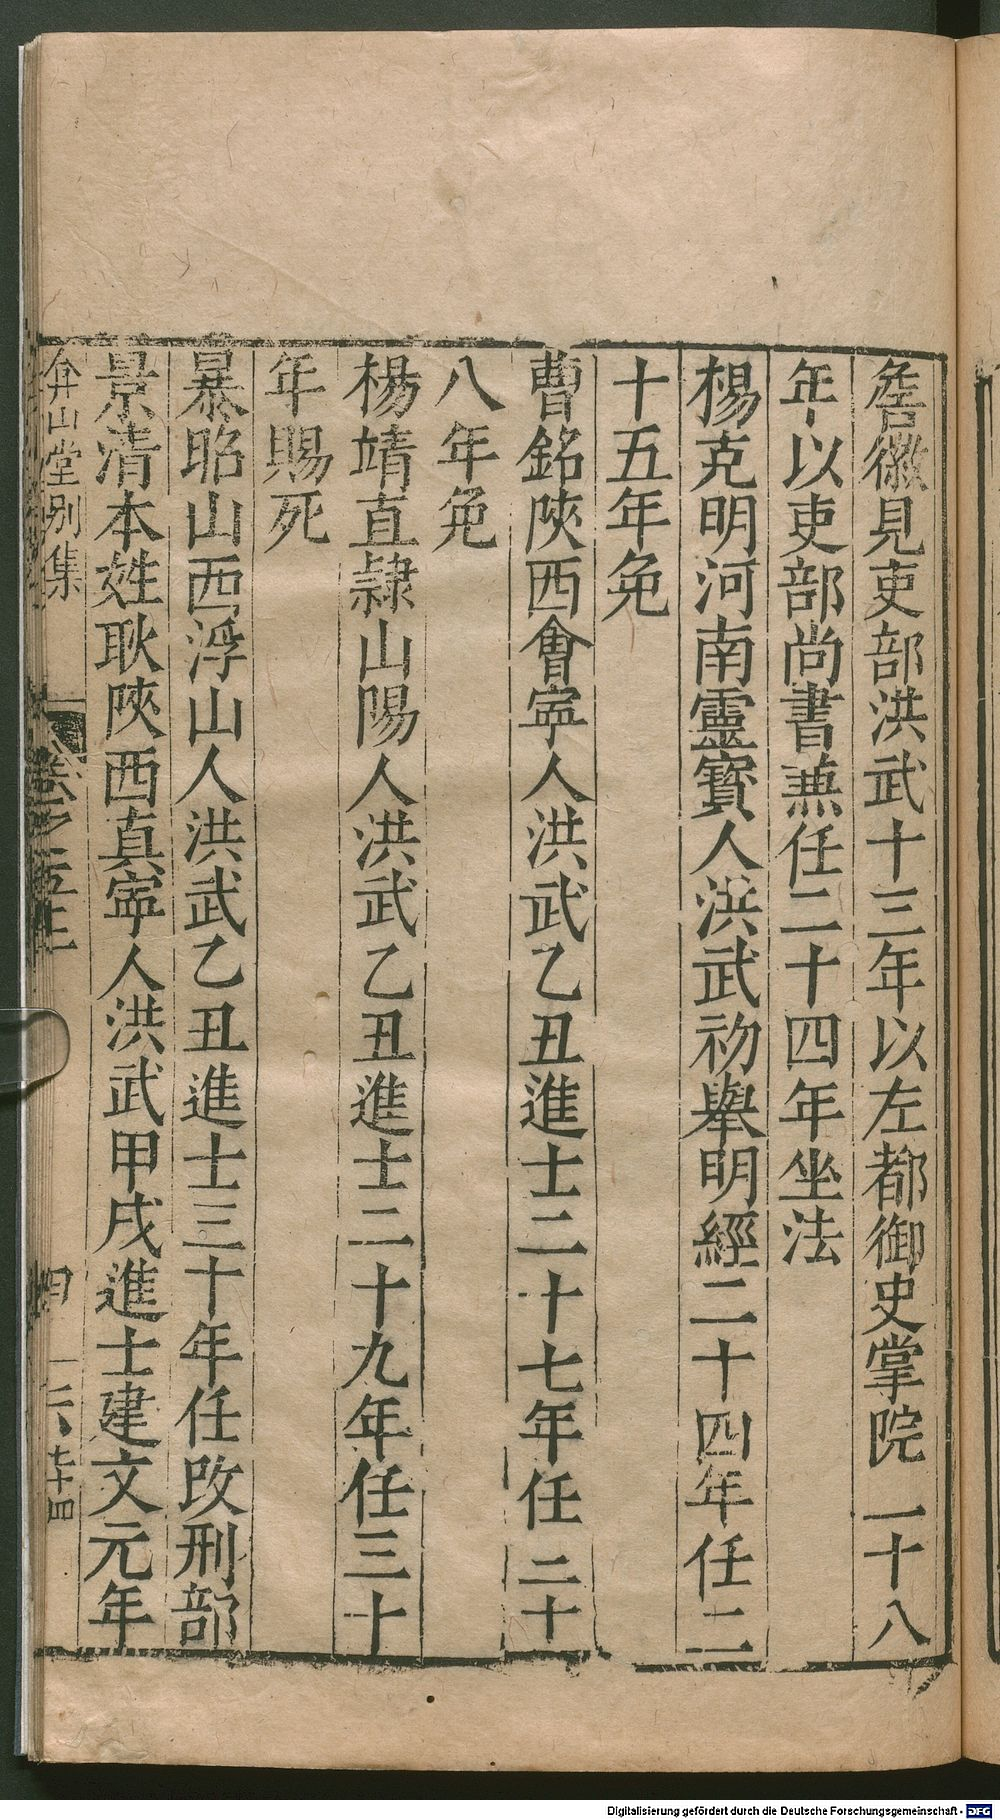 詹徽見吏部洪武十三年以左都御史掌院一十八
年以吏部尚書兼任二十四年坐法
楊克明河南靈寶人洪武初舉明經二十四年任二
十五年免
曹銘陝西會寧人洪武乙丑進士二十七年任二十
八年免
楊靖直隸山陽人洪武乙丑進士二十九年任三十
年賜死
暴昭山西浮山人洪武乙丑進士三十年任改刑部
景清本姓耿陝西真寧人洪武甲戌進士建文元年
弇山堂別集
卷之五十三
Digitalisierung gefördert durch die Deutsche Forschungsgemeinschaft - DFG